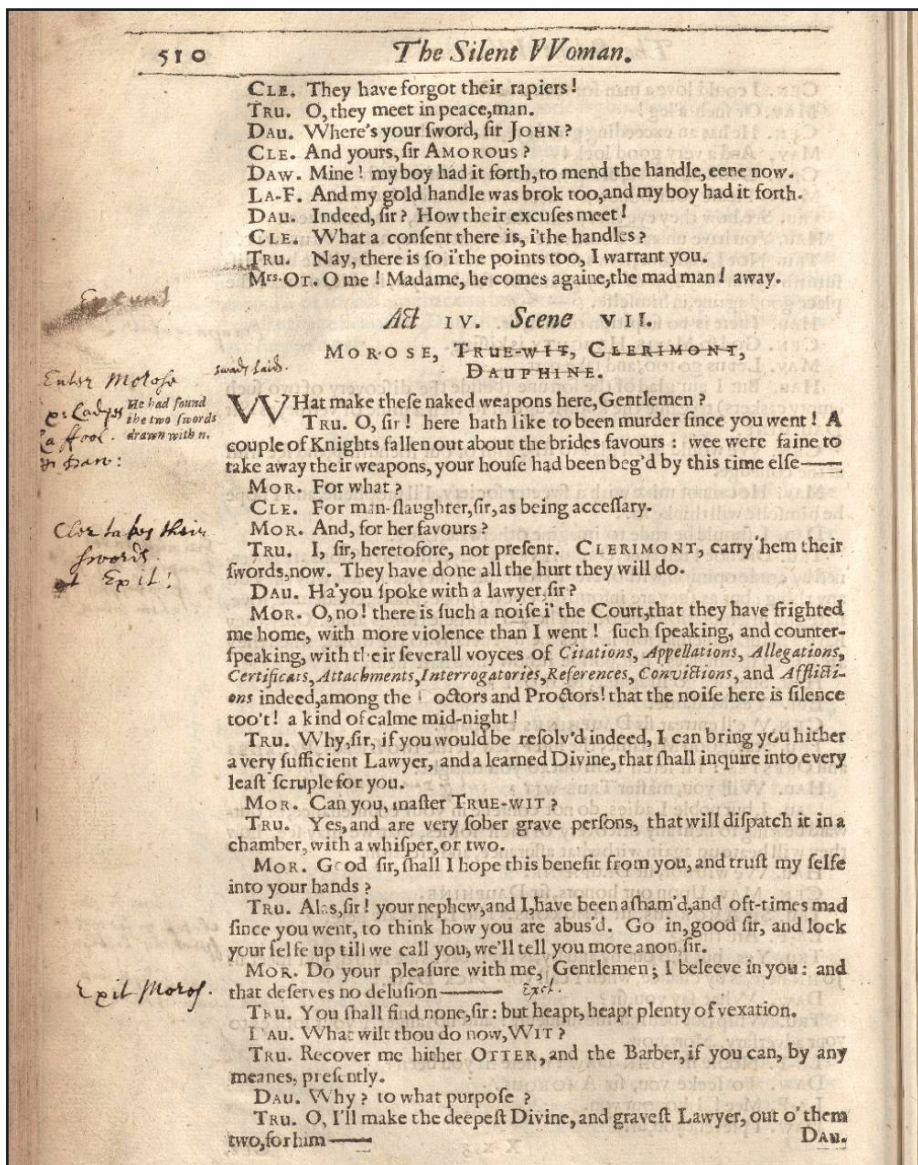 510 The Silent VVoman.
CLE. They have forgot their rapiers!
TRU. O, they meet in peace,man.
DAU. Where's your ſword, ſir JOHN?
CLE. And yours, ſir AMOROUS?
DAW. Mine! my boy had it forth,to mend the handle, eene now.
LA-F. And my gold handle was brok too,and my boy had it forth.
DAU. Indeed, ſir? How their excuſes meet!
CLE. What a conſent there is, i'the handles?
TRU. Nay, there is ſo i'the points too, I warrant you.
Mrs. OT. O me! Madame, he comes againe,the mad man! away.
Exeunt
Act IV. Scene VII.
MOROSE, TRUE-WIT, CLERIMONT,
DAUPHINE.
Enter Moroſe
He had found
the two ſwords
drawn with n.
WHat make theſe naked weapons here, Gentlemen?
TRU. O, ſir! here hath like to been murder since you went! A
couple of Knights fallen out about the brides favours: wee were faine to
take away their weapons, your houſe had been beg'd by this time elſe——
MOR. For what?
CLE. For man-ſlaughter,ſir, as being acceſſary.
MOR. And, for her favours?
Cler takes their
ſwords.
Exit!
TRU. I, ſir, heretofore, not preſent. CLERIMONT, carry 'hem their
ſwords,now. They have done all the hurt they will do.
DAU. Ha'you ſpoke with a lawyer,ſir?
MOR. O,no! there is ſuch a noiſe i' the Court,that they have frighted
me home, with more violence than I went! ſuch ſpeaking, and counter-
ſpeaking, with their ſeverall voyces of Citations, Appellations, Allegations,
Certificats, Attachments, Interrogatories, References, Convictions, and Afflicti-
ons indeed,among the octors and Proctors! that the noiſe here is ſilence
too't! a kind of calme mid-night!
TRU. Why,ſir, if you would be reſolv'd indeed, I can bring you hither
a very ſufficient Lawyer, and a learned Divine, that ſhall inquire into every
leaſt ſcruple for you.
MOR. Can you, maſter TRUE-WIT?
TRU. Yes,and are very ſober grave perſons, that will diſpatch it in a
chamber, with a whiſper, or two.
MOR. Good ſir, ſhall I hope this benefit from you, and truſt my ſelfe
into your hands?
TRU. Alas,ſir! your nephew,and I,have been aſham'd,and oft-times mad
ſince you went, to think how you are abus'd. Go in,good ſir, and lock
your ſelfe up till we call you, we'll tell you more anon,ſir.
Exit Moroſ.
MOR. Do your pleaſure with me, Gentlemen; I beleeve in you: and
that deſerves no deluſion—— Exit.
TRU. You ſhall find none,ſir: but heapt, heapt plenty of vexation.
DAU. What wilt thou do now, WIT?
TRU. Recover me hither OTTER, and the Barber, if you can, by any
meanes, preſently.
DAU. Why? to what purpoſe?
TRU. O, I'll make the deepeſt Divine, and graveſt Lawyer, out o' them
two,for him——
DAU.